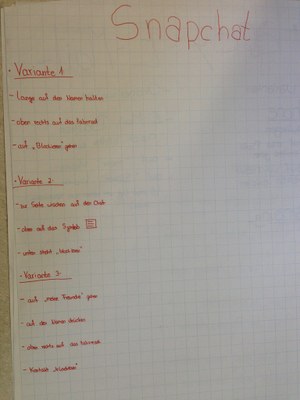 Snapchat
• Variante 1:
- Lange auf den Namen halten
- oben rechts auf das Fahrrad
- auf „Blockieren" gehen
• Variante 2:
- zur Seite wischen auf den Chat
- oben auf das Symbol
- unten steht „blockieren"
• Variante 3:
- auf „meine Freunde" gehen
- auf den Namen drücken
- oben rechts auf das Fahrrad
- Kontakt „blockieren"